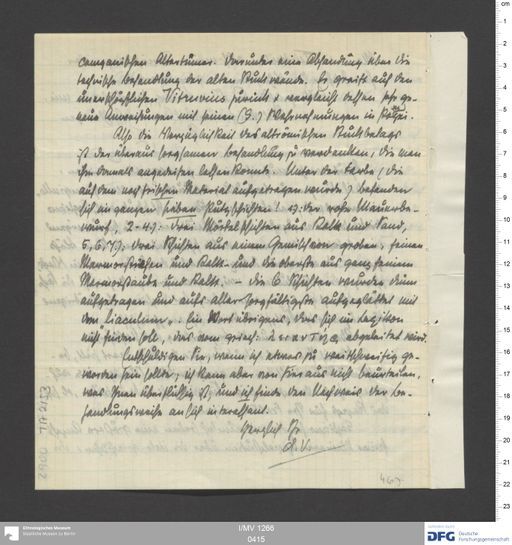 campanischen Altertümer. Darunter eine Abhandlung über die
technische Behandlung der alten Stuckwände. Er greift auf den
unerschöpflichen Vitruvius zurück & vergleicht dessen sehr ge-
naue Anweisungen mit seinen (G.) Wahrnehmungen in
Also die Vorzüglichkeit des altrömischen Stuckbelags
ist der überaus sorgsamen Behandlung zu verdanken, die man
ihm damals angedeihen lassen konnte. Unter der Farbe, (die
auf den noch frischen Material aufgetragen wurde) befanden
sich im ganzen sieben Putzschichten! 1): der rohe Mauerbe-
wurf, 2-4): drei Mörtelschichten aus Kalk und Sand,
5, 6, 7): drei Schichten aus einem Gemisch von groben, feinen
Marmorstückchen und Kalk und die oberste aus ganz feinem
Marmorstaube und Kalk. Die 6 Schichten wurden dünn
aufgetragen und aufs allersorgfältigste aufgeglättet mit
den liaculum; Ein Wort übrigens, das sich im Lexikon
nicht finden soll, das vom griech. abgeleitet wird.
Entschuldigen Sie, wenn ich etwas zu weitschweifig ge-
worden sein sollte; ich kann aber von hier aus nicht beurteilen,
was Ihnen überflüssig ist, und ich finde den Nachweis der Be-
handlungsweise an sich interessant.
Herzlich Ihr
467
I/MV 1266
0415
Ethnologisches Museum
Staatliche Museen zu Berlin
gefördert durch
DFG Deutsche
Forschungsgemeinschaft
cm
1
2
3
4
5
6
7
8
9
10
11
12
13
14
15
16
17
18
19
20
21
22
23